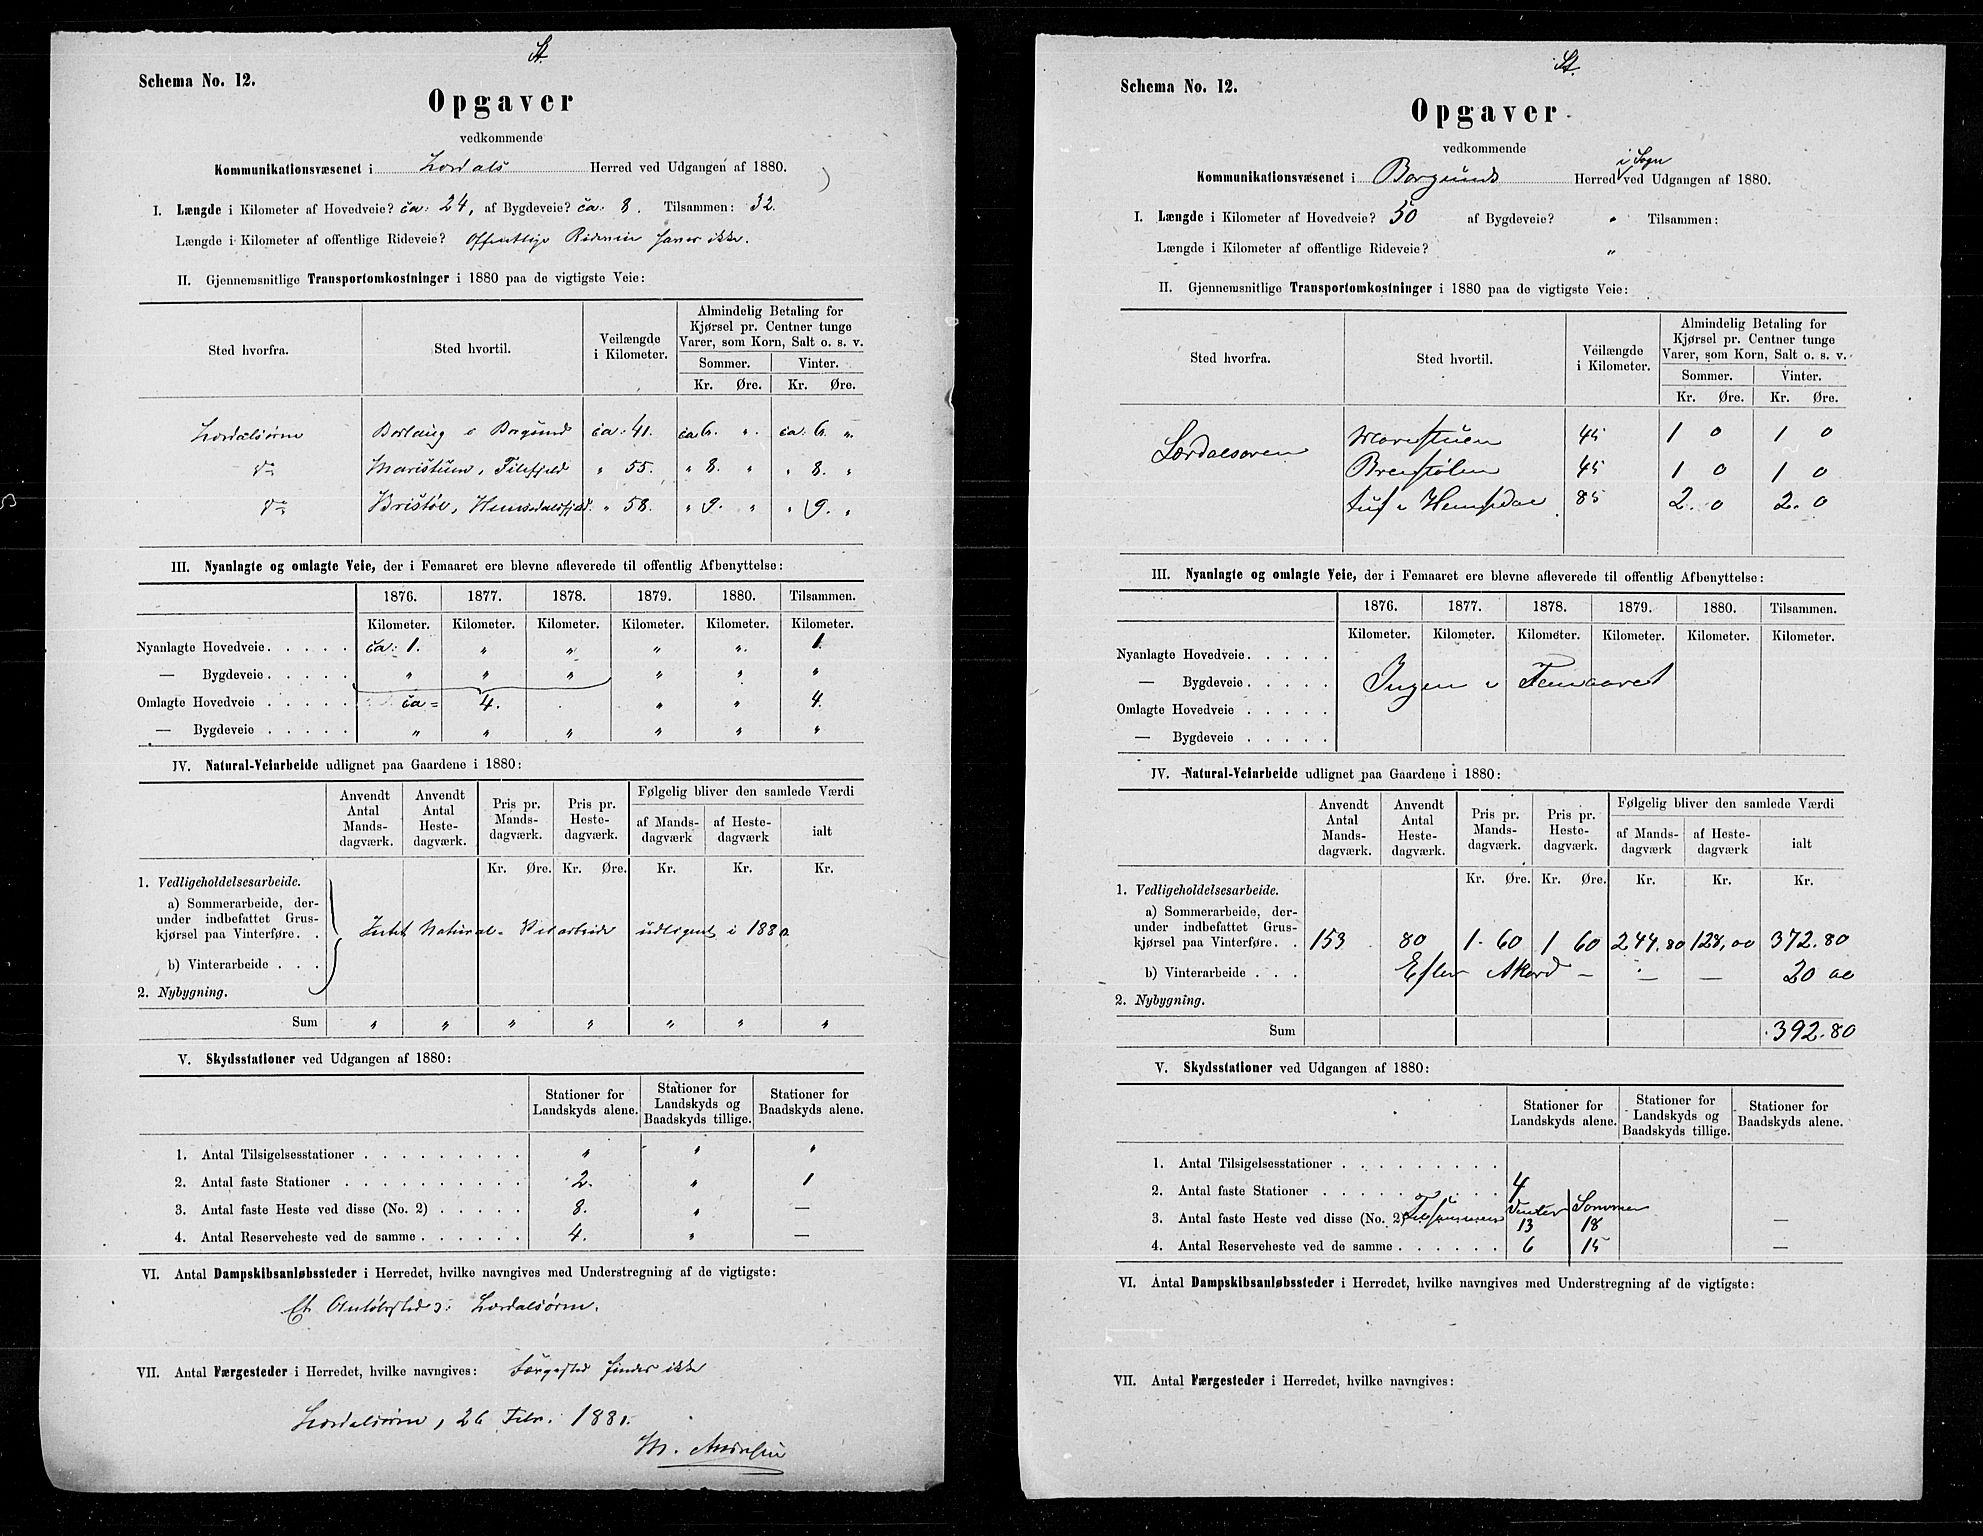 St.
Schema No. 12.
Opgaver
vedkommende
Kommunikationsvæsenet i Lærdals Herred ved Udgangen af 1880.
I. Længde i Kilometer af Hovedveie? ca: 24, af Bygdeveie? ca: 8. Tilsammen: 32.
Længde i Kilometer af offentlige Rideveie? Offentlige Rideveie haves ikke.
II. Gjennemsnitlige Transportomkostninger i 1880 paa de vigtigste Veie:
Sted hvorfra. Sted hvortil. Veilængde i Kilometer. Almindelig Betaling for Kjørsel pr. Centner tunge Varer, som Korn, Salt o. s. v.
Sommer. Vinter.
Kr. Øre. Kr. Øre.
Lærdalsøren Borlaug i Borgund ca: 41. ca 6. „ ca: 6. „
do Maristuen, Filefjeld „ 55. „ 8. „ „ 8. „
do Bristøl, Hemsedalsfjeld. „ 58. „ 9. „ „ 9. „
III. Nyanlagte og omlagte Veie, der i Femaaret ere blevne afleverede til offentlig Afbenyttelse:
1876. 1877. 1878. 1879. 1880. Tilsammen.
Kilometer. Kilometer. Kilometer. Kilometer. Kilometer. Kilometer.
Nyanlagte Hovedveie. ca: 1. „ „ „ „ 1.
— Bygdeveie „ „ „ „ „ „
Omlagte Hovedveie ca = 4. „ „ 4.
— Bygdeveie „ „ „ „ „ „
IV. Natural-Veiarbeide udlignet paa Gaardene i 1880:
Anvendt Antal Mandsdagværk. Anvendt Antal Hestedagværk. Pris pr. Mandsdagværk. Pris pr. Hestedagværk. Følgelig bliver den samlede Værdi
af Mandsdagværk af Hestedagværk ialt
Kr. Øre. Kr. Øre. Kr. Kr. Kr.
1. Vedligeholdelsesarbeide.
a) Sommerarbeide, derunder indbefattet Gruskjørsel paa Vinterføre.
Intet Natural-Veiarbeide udlignet i 1880.
b) Vinterarbeide
2. Nybygning.
Sum „ „ „ „ „ „ „
V. Skydsstationer ved Udgangen af 1880:
Stationer for Landskyds alene. Stationer for Landskyds og Baadskyds tillige. Stationer for Baadskyds alene.
1. Antal Tilsigelsesstationer „ „ „
2. Antal faste Stationer 2. „ 1
3. Antal faste Heste ved disse (No. 2) 8. „ —
4. Antal Reserveheste ved de samme 4. „ —
VI. Antal Dampskibsanløbssteder i Herredet, hvilke navngives med Understregning af de vigtigste:
Et Anløbssted: Lærdalsøren.
VII. Antal Færgesteder i Herredet, hvilke navngives: Færgested findes ikke
Lærdalsøren, 26 Febr. 1881.
M. Andresen
St.
Schema No. 12.
Opgaver
vedkommende
Kommunikationsvæsenet i Borgunds Herred i Sogn ved Udgangen af 1880.
I. Længde i Kilometer af Hovedveie? 50 af Bygdeveie? „ Tilsammen:
Længde i Kilometer af offentlige Rideveie? „
II. Gjennemsnitlige Transportomkostninger i 1880 paa de vigtigste Veie:
Sted hvorfra. Sted hvortil. Veilængde i Kilometer. Almindelig Betaling for Kjørsel pr. Centner tunge Varer, som Korn, Salt o. s. v.
Sommer. Vinter.
Kr. Øre. Kr. Øre.
Lærdalsøren Maristuen 45 1 0 1 0
Breistølen 45 1 0 1 0
Tuf i Hemsedal 85 2. 0 2. 0
III. Nyanlagte og omlagte Veie, der i Femaaret ere blevne afleverede til offentlig Afbenyttelse:
1876. 1877. 1878. 1879. 1880. Tilsammen.
Kilometer. Kilometer. Kilometer. Kilometer. Kilometer. Kilometer.
Nyanlagte Hovedveie.
— Bygdeveie Ingen i Femaaret
Omlagte Hovedveie
— Bygdeveie
IV. Natural-Veiarbeide udlignet paa Gaardene i 1880:
Anvendt Antal Mandsdagværk. Anvendt Antal Hestedagværk. Pris pr. Mandsdagværk. Pris pr. Hestedagværk. Følgelig bliver den samlede Værdi
af Mandsdagværk af Hestedagværk ialt
Kr. Øre. Kr. Øre. Kr. Kr. Kr.
1. Vedligeholdelsesarbeide.
a) Sommerarbeide, derunder indbefattet Gruskjørsel paa Vinterføre. 153 80 1. 60 1 60 244.80 128,00 372.80
b) Vinterarbeide Efter Akord — — — 20 00
2. Nybygning.
Sum 392.80
V. Skydsstationer ved Udgangen af 1880:
Stationer for Landskyds alene. Stationer for Landskyds og Baadskyds tillige. Stationer for Baadskyds alene.
1. Antal Tilsigelsesstationer
2. Antal faste Stationer 4
3. Antal faste Heste ved disse (No. 2) Tilsammen Vinter 13 Sommer 18 —
4. Antal Reserveheste ved de samme 6 15 —
VI. Antal Dampskibsanløbssteder i Herredet, hvilke navngives med Understregning af de vigtigste:
VII. Antal Færgesteder i Herredet, hvilke navngives: